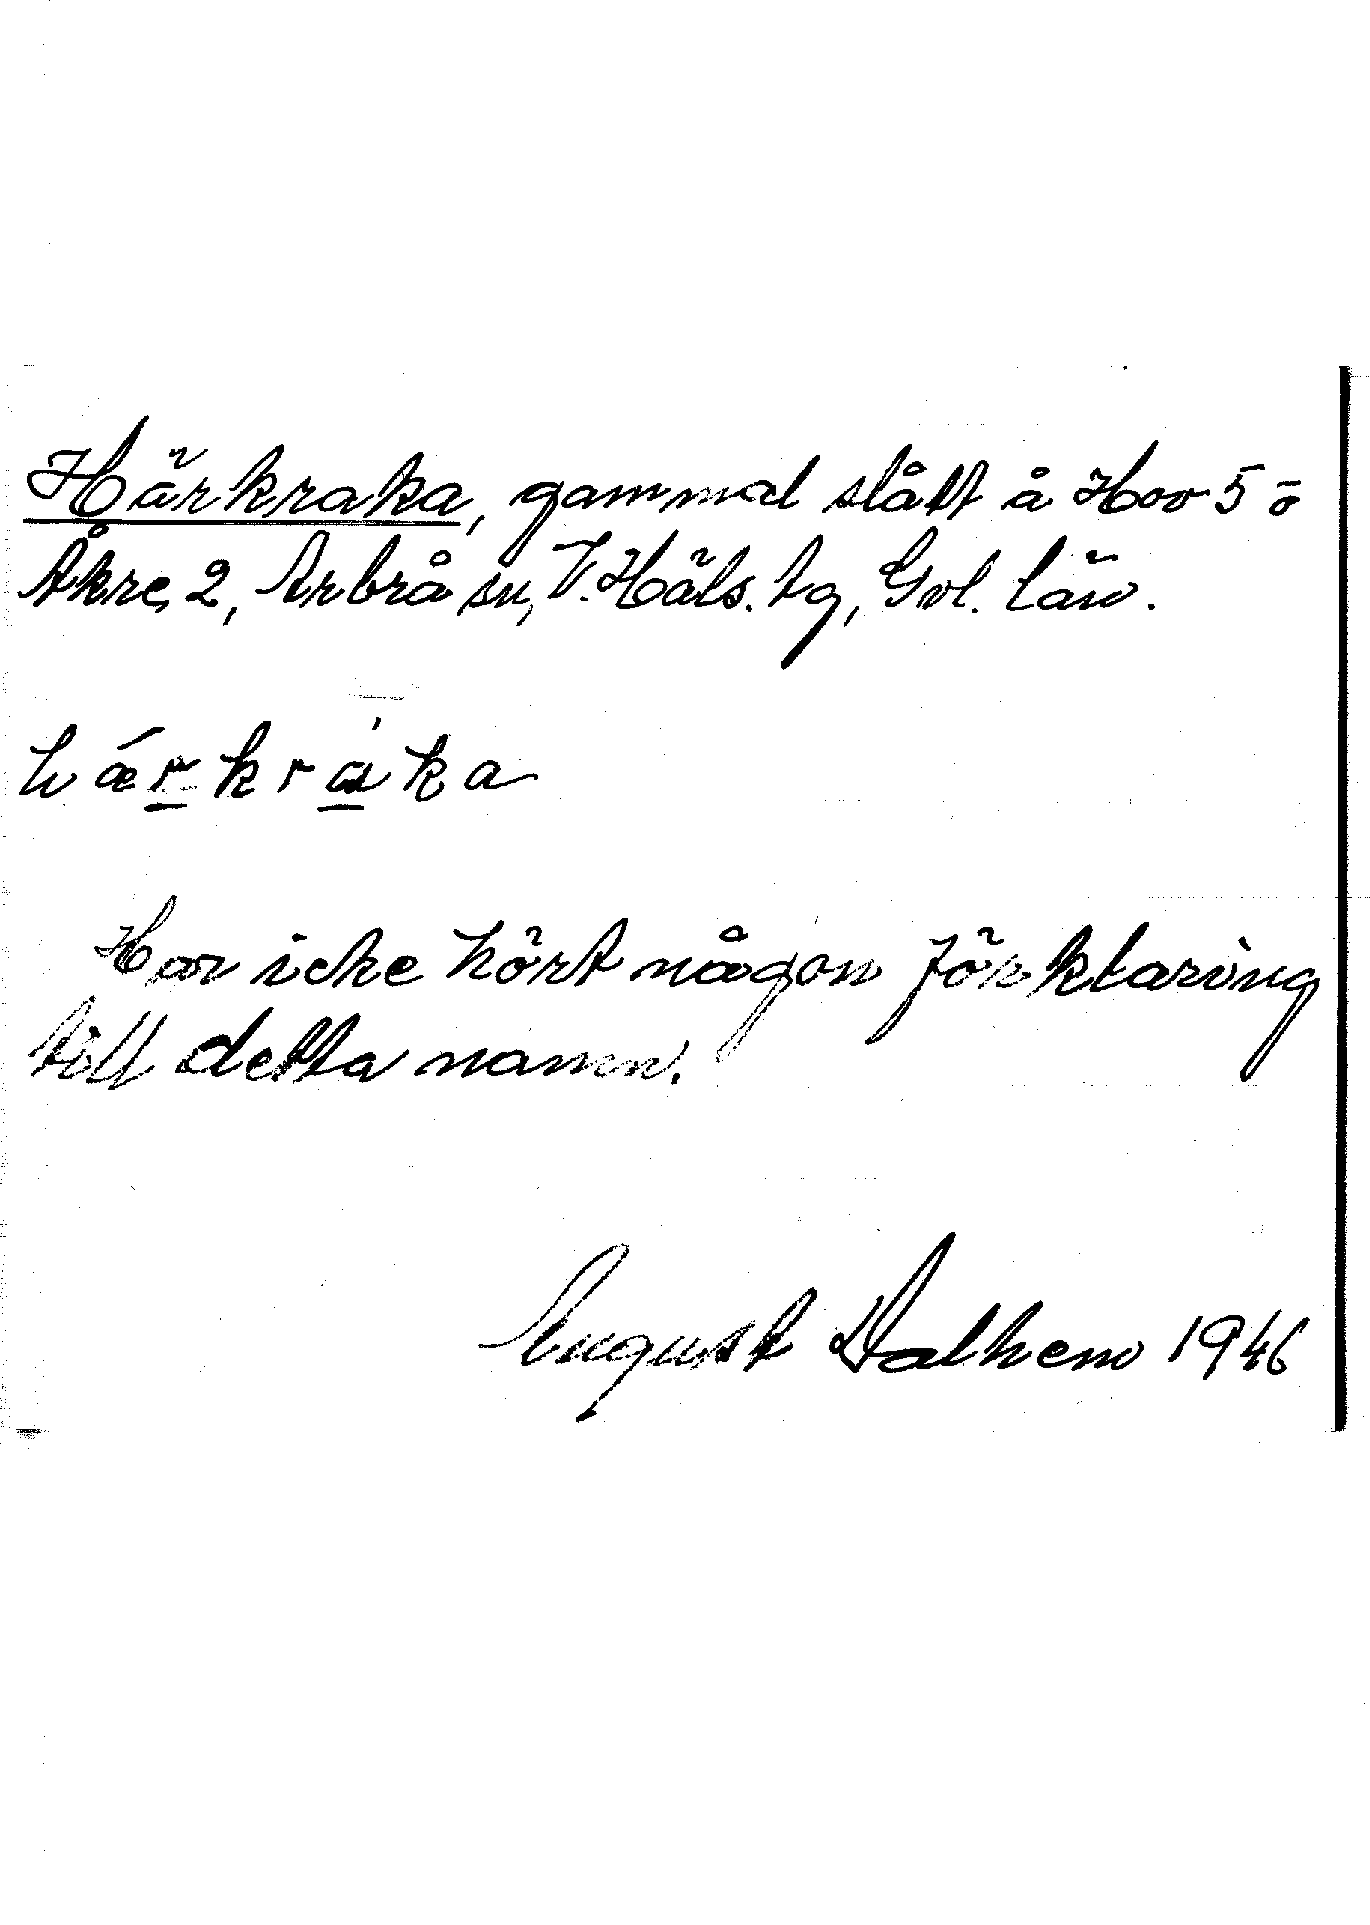 Härkraka, gammal slått å Hov 5 o
Åkre 2, Arbrå sn, V. Häls. tg, Gvl. län.
hǽrkráka
Har icke hört någon förklaring
till detta namn.
August Dalhem 1946